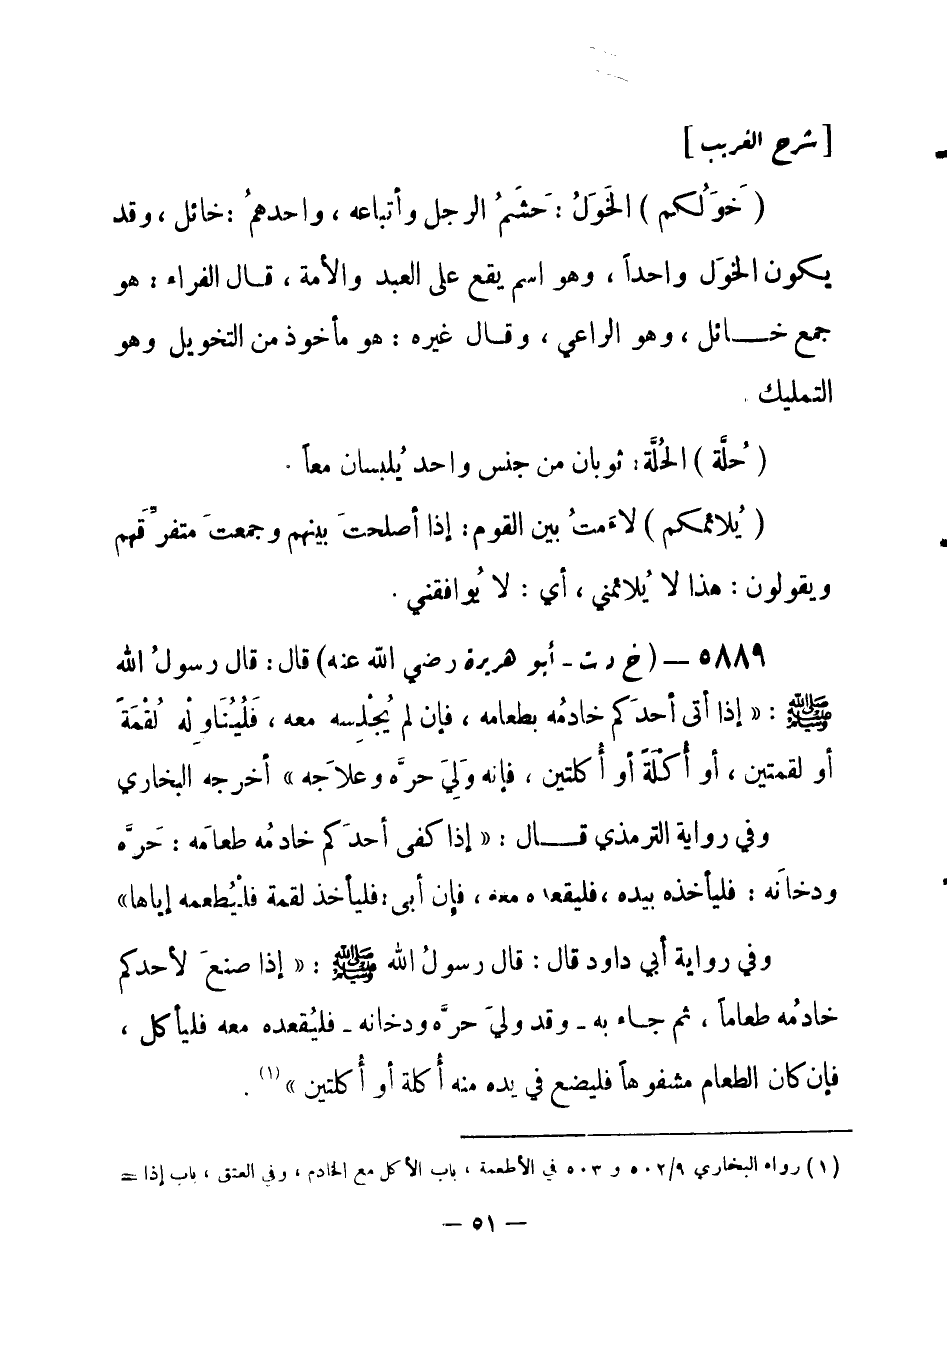 [ شرح الغريب ]
( خَوَلُكم ) الخَوَلُ : حَشَمُ الرجل وأتباعه ، واحدهمُ : خائل ، وقد
يكون الخَوَل واحداً ، وهو اسم يقع على العبد والأمة ، قال الفراء : هو
جمع خائل ، وهو الراعي ، وقال غيره : هو مأخوذ من التخويل وهو
التمليك .
( حُلَّة ) الحُلَّة : ثوبان من جنس واحد يُلبسان معاً .
( يُلائمكم ) لاءَمتُ بين القوم : إذا أصلحتَ بينهم وجمعتَ متفرِّقَهم
ويقولون : هذا لا يُلائمني ، أي : لا يُوافقني .
٥٨٨٩ – ( خ د ت - أبو هريرة رضي الله عنه ) قال : قال رسولُ الله
ﷺ : « إذا أتى أحدَكم خادمُه بطعامه ، فإن لم يُجْلِسه معه ، فَلْيُنَاوِلْه لُقْمَةً
أو لقمتين ، أو أُكْلَةً أو أُكلتين ، فإنه وَلِيَ حرَّه وعلاجَه » أخرجه البخاري
وفي رواية الترمذي قال : « إذا كفى أحدَكم خادمُه طعامَه : حَرَّه
ودخانَه : فليأخذه بيده ، فليقعده معه ، فإن أبى : فليأخذ لقمة فلْيُطعمه إياها »
وفي رواية أبي داود قال : قال رسولُ الله ﷺ : « إذا صنعَ لأحدكم
خادمُه طعاماً ، ثم جاء به - وقد وليَ حرَّه ودخانه - فليُقعده معه فليأكل ،
فإن كان الطعام مشفوهاً فليضع في يده منه أُكلة أو أُكلتين » (١) .
(١) رواه البخاري ٥٠٢/٩ و ٥٠٣ في الأطعمة ، باب الأكل مع الخادم ، وفي العتق ، باب إذا =
— ٥١ —